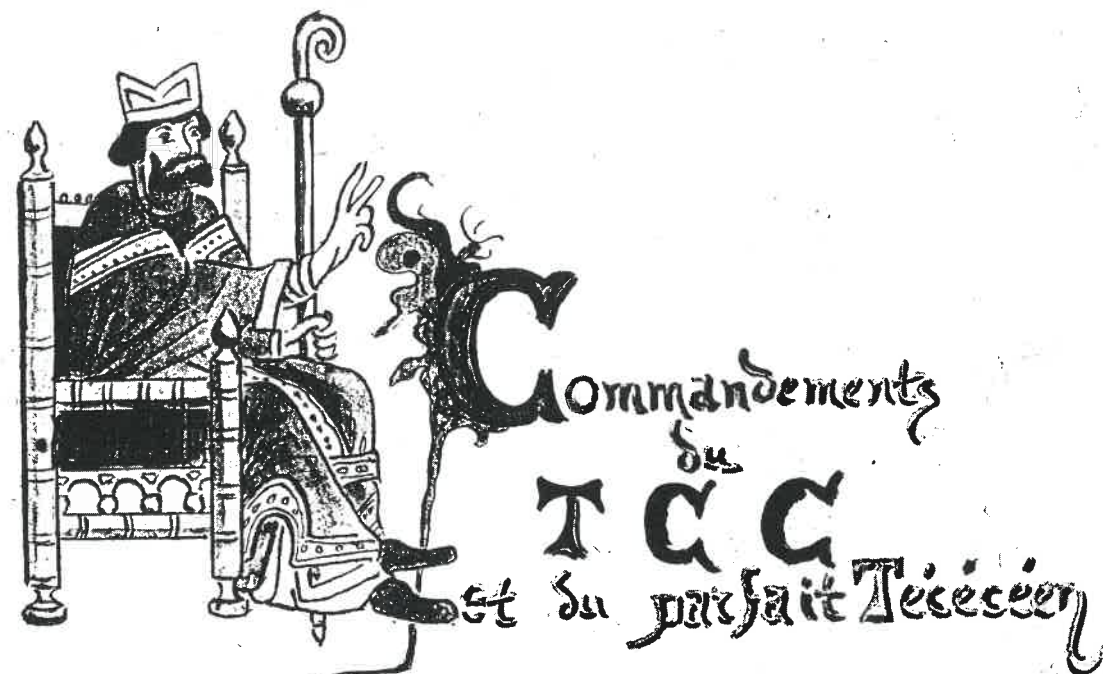 Commandements
du
T C C
et du parfait Técécéen